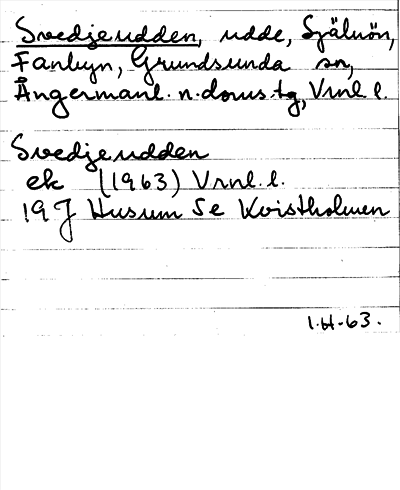 Svedjeudden, udde, Själnön,
Fanbyn, Grundsunda sn,
Ångermanl. n. doms.tg, Vrnl l.
Svedjeudden
ek (1963) Vrnl. l.
19J Husum Se Kvistholmen
I.H-63.